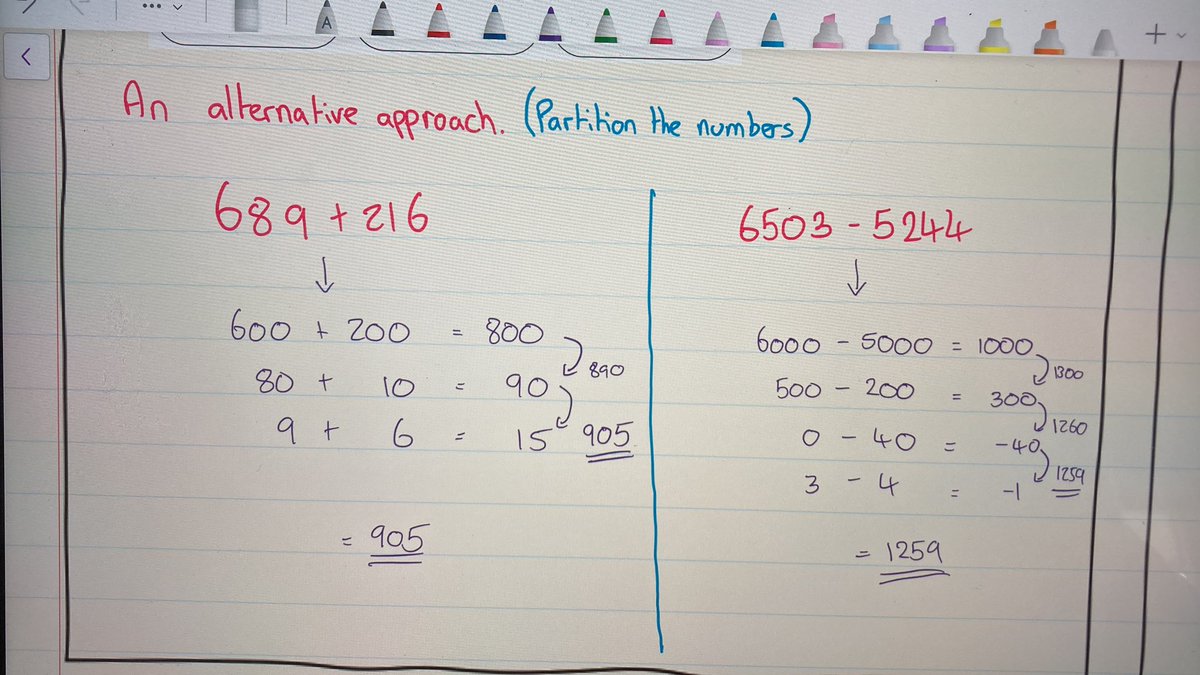 A
An alternative approach. (Partition the numbers)
689 + 216
↓
600 + 200 = 800
890
80 + 10 = 90
9 + 6 = 15 905
= 905
6503 - 5244
↓
6000 - 5000 = 1000
1300
500 - 200 = 300
1260
0 - 40 = -40
1259
3 - 4 = -1
= 1259